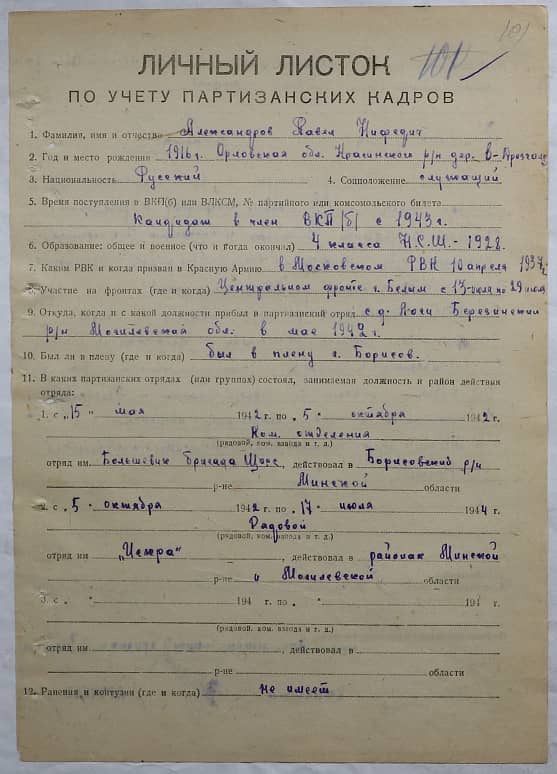 101
101
ЛИЧНЫЙ ЛИСТОК
ПО УЧЕТУ ПАРТИЗАНСКИХ КАДРОВ
1. Фамилия, имя и отчество Александров Павел
2. Год и место рождения 1916 г. Орловская обл. р/н дер.
3. Национальность Русский 4. Соцположение служащий
5. Время поступления в ВКП(б) или ВЛКСМ, № партийного или комсомольского билета
Кандидат в член ВКП(б) с 1943 г.
6. Образование: общее и военное (что и когда окончил) 4 класса Н.С.Ш. - 1928.
7. Каким РВК и когда призван в Красную Армию в Московском РВК 10 апреля
8. Участие на фронтах (где и когда) Центральном фронте г. Белым с 13 июля по 29 июля
9. Откуда, когда и с какой должности прибыл в партизанский отряд с д. Логи Березинский
р/н Могилевской обл. в мае 1942 г.
10. Был ли в плену (где и когда) был в плену г. Борисов.
11. В каких партизанских отрядах (или группах) состоял, занимаемая должность и район действия
отряда:
1. с „15" мая 1942 г. по „5 · октября 1942 г.
Ком. отделения
(рядовой, ком. взвода и т. д.)
отряд им Большевик бригада Щорс, действовал в Борисовский р/н
р-не Минской области
2. с „5 · октября 1942 г. по „17 · июля 1944 г.
Рядовой
(рядовой, ком. взвода и т. д.)
отряд им „Искра", действовал в районах Минской
р-не и Могилевской области
3. с „ " 194 г. по „ " 194 г.
(рядовой, ком. взвода и т. д.)
отряд им , действовал в
р-не области
12. Ранения и контузии (где и когда) не имеет